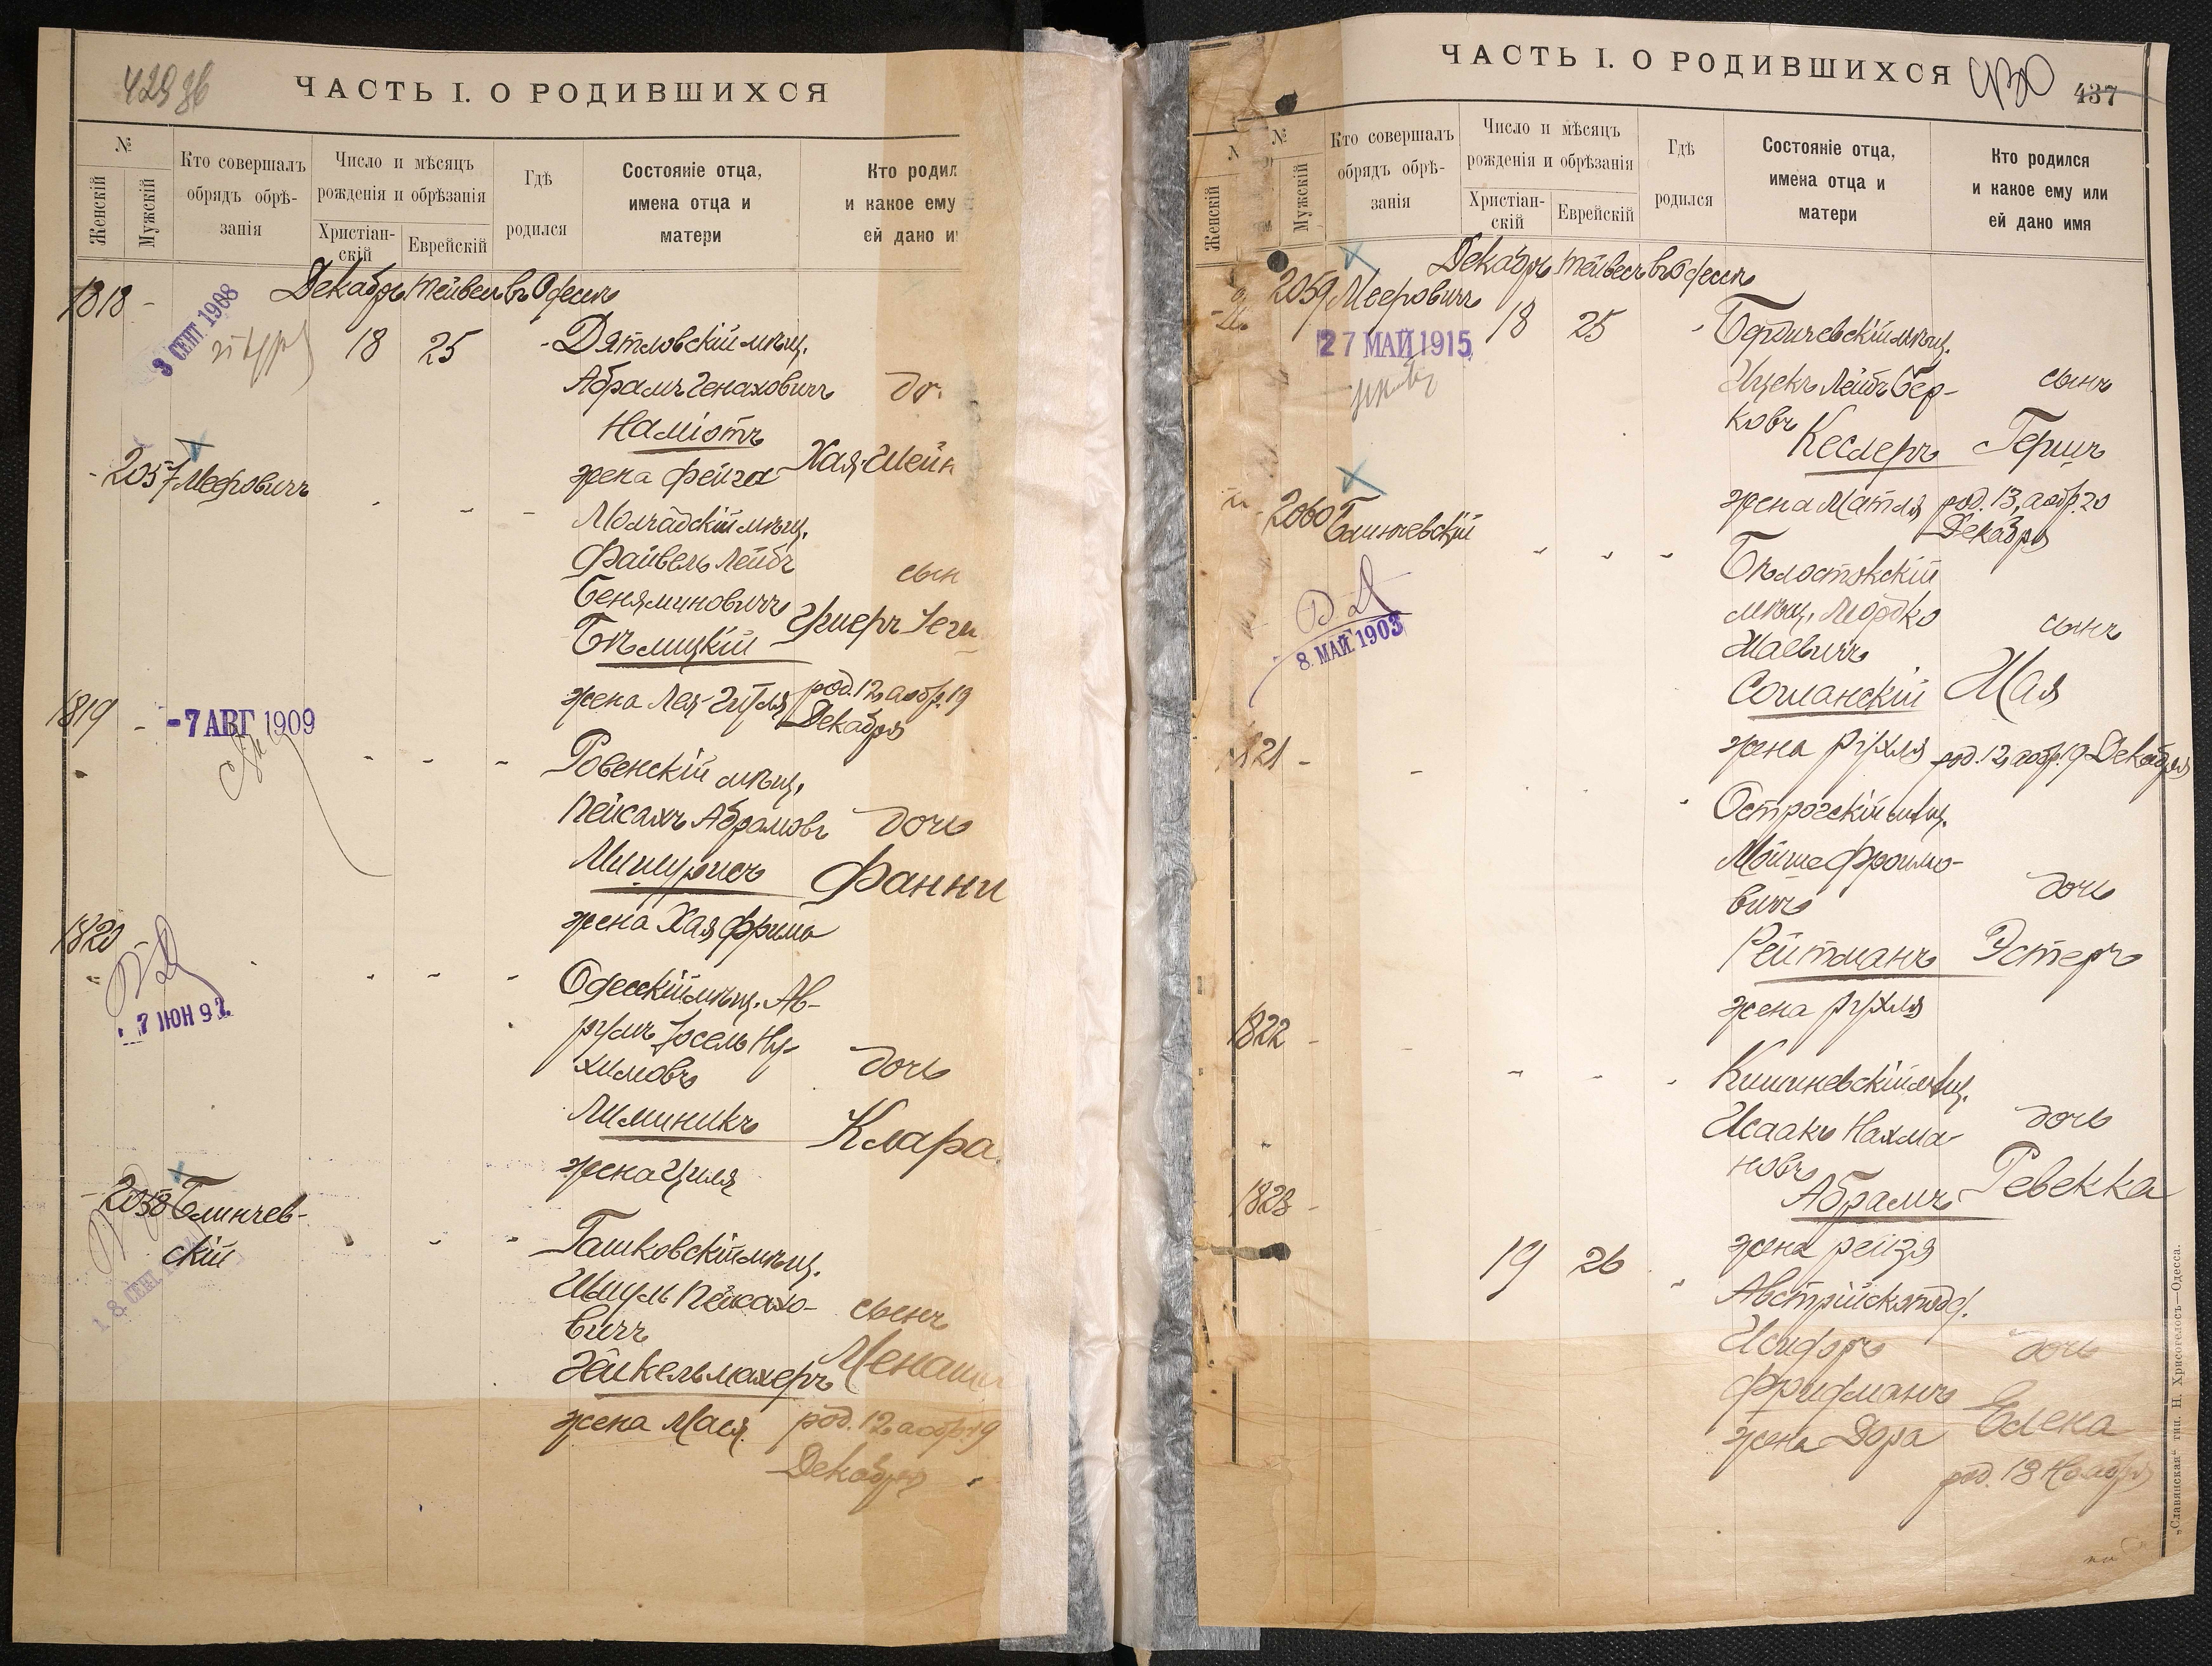 ЧАСТЬ I. О РОДИВШИХСЯ
№
Женскій
Мужскій
Кто совершалъ
обрядъ обрѣ-
занія
Число и мѣсяцъ
рожденія и обрѣзанія
Христіан-
скій
Еврейскій
Гдѣ
родился
Состояніе отца,
имена отца и
матери
Кто родил
и какое ему
ей дано и
1818 -
3 СЕНТ 1908
Декабрь Тейвесъ въ Одессѣ
18 25
Дятловскій мѣщ.
Абрамъ Генаховичъ
Наміотъ
жена Фейга
до
Хая-Шейн
- 2057 Мееровичъ
Молчадскій мѣщ.
Файвель Лейбъ
Беняминовичъ
Бѣлицкій
жена Лея-Гитля
сын
род. 12, а обр. 19
Декабря
1819 -
-7 АВГ 1909
Ровенскій мѣщ.
Пейсахъ Абрамовъ
Мишурисъ
жена Хая Фрима
дочь
Фанни
1820 -
7 ІЮН 9
Одесскій мѣщ. Ав-
румъ Іосель Ну-
химовъ
Лиминикъ
жена Циля
дочь
Клара.
- 2058 Блинчев-
скій
18 СЕНТ
Рашковскій мѣщ.
Шмуль Пейсахо-
вичъ
Гейкельмахеръ
жена Мася.
сынъ
Менаши
род. 12, а обр. 19
Декабря
ЧАСТЬ I. О РОДИВШИХСЯ
430
437
№
Женскій
Мужскій
Кто совершалъ
обрядъ обрѣ-
занія
Число и мѣсяцъ
рожденія и обрѣзанія
Христіан-
скій
Еврейскій
Гдѣ
родился
Состояніе отца,
имена отца и
матери
Кто родился
и какое ему или
ей дано имя
2059 Мееровичъ
27 МАЙ 1915
Декабрь Тейвесъ въ Одессѣ
18 25
Бердичевскій мѣщ.
Ицекъ Лейбъ Бер-
ковъ
Кеслеръ
жена Матля
сынъ
Гершъ
род. 13, а обр. 20
Декабря
2060 Блинчевскій
8 МАЙ 1903
Бѣлостокскій
мѣщ. Мордко
Шаевичъ
жена Рухля
сынъ
Шая
род. 12, а обр. 19 Декабря
1821 -
Острогскій мѣщ.
Мойше Фроимо-
вичъ
Рейтманъ
жена Рухля
дочь
Эстеръ
1822 -
Кишиневскій мѣщ.
Исаакъ Нахма-
новъ
Абрамъ
жена Рейзя
дочь
Ревекка
1823 -
19 26
Австрійскоподд.
Исидоръ
Фридманъ
жена Дора
дочь
Елена
род. 18 Ноября
„Славянская“ тип. Н. Хрисогелосъ—Одесса.